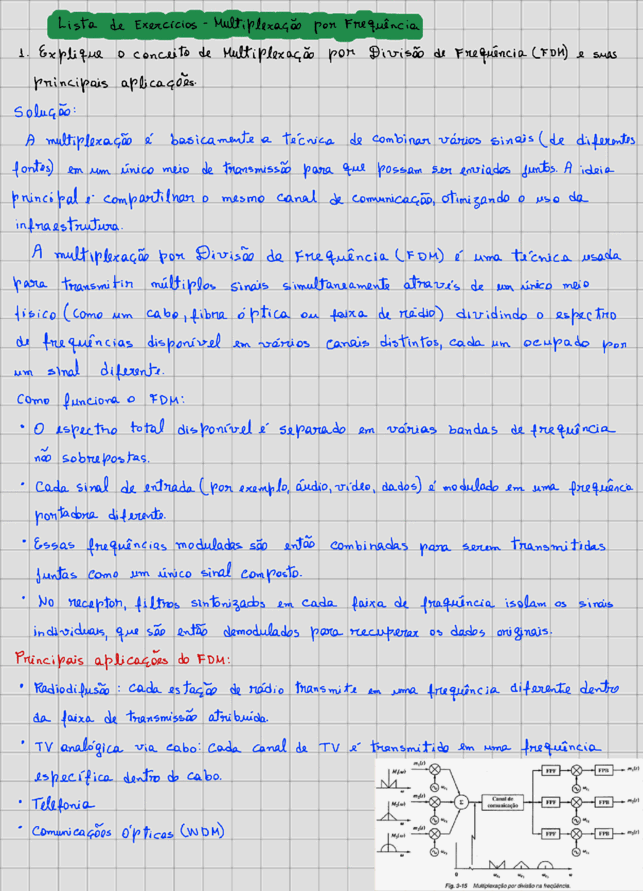 Lista de Exercícios - Multiplexação por Frequência
1. Explique o conceito de Multiplexação por Divisão de Frequência (FDM) e suas
principais aplicações.
Solução:
A multiplexação é basicamente a técnica de combinar vários sinais (de diferentes
fontes) em um único meio de transmissão para que possam ser enviados juntos. A ideia
principal é compartilhar o mesmo canal de comunicação, otimizando o uso da
infraestrutura.
A multiplexação por Divisão de Frequência (FDM) é uma técnica usada
para transmitir múltiplos sinais simultaneamente através de um único meio
físico (como um cabo, fibra óptica ou faixa de rádio) dividindo o espectro
de frequências disponível em vários canais distintos, cada um ocupado por
um sinal diferente.
Como funciona o FDM:
• O espectro total disponível é separado em várias bandas de frequência
não sobrepostas.
• Cada sinal de entrada (por exemplo, áudio, vídeo, dados) é modulado em uma frequência
portadora diferente.
• Essas frequências moduladas são então combinadas para serem transmitidas
juntas como um único sinal composto.
• No receptor, filtros sintonizados em cada faixa de frequência isolam os sinais
individuais, que são então demodulados para recuperar os dados originais.
Principais aplicações do FDM:
• Radiodifusão: cada estação de rádio transmite em uma frequência diferente dentro
da faixa de transmissão atribuída.
• TV analógica via cabo: Cada canal de TV é transmitido em uma frequência
específica dentro do cabo.
• Telefonia
• Comunicações Ópticas (WDM)
m₁(t)
M₁(ω)
ω
m₂(t)
M₂(ω)
ω
m₃(t)
M₃(ω)
ω
Σ
Canal de
comunicação
FPF
FPB
m₁(t)
FPF
FPB
m₂(t)
FPF
FPB
m₃(t)
0
ω
Fig. 3-15 Multiplexação por divisão na freqüência.